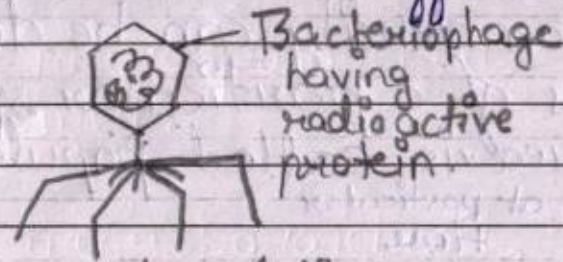 Bacteriophage
having
radioactive
protein.